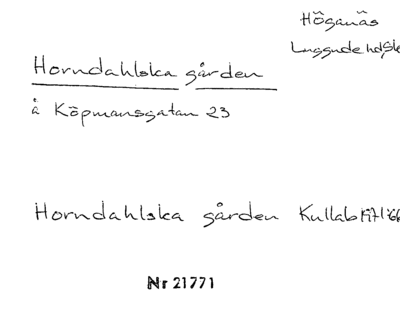 Höganäs
Luggude hd, Sk
Horndahlska gården
å Köpmansgatan 23
Horndahlska gården Kullab
Nr 21771